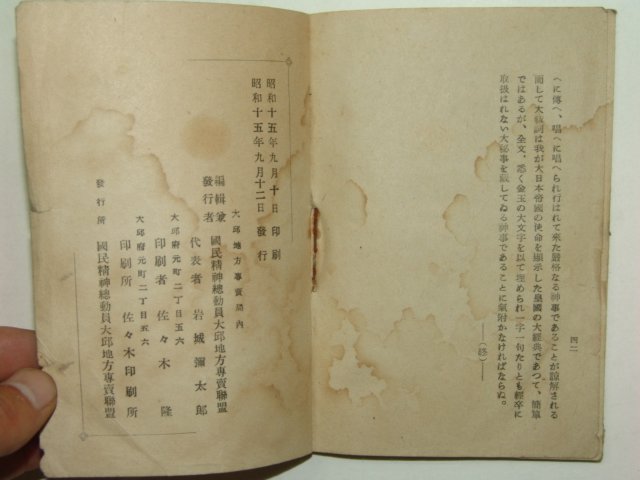 へに傳へ、唱へに唱へられ行はれて來た嚴格なる神事であることが諒解される
而して大祓詞は我が大日本帝國の使命を顯示した皇國の大經典であつて、簡單
ではあるが、全文、悉く金玉の大文字を以て埋められ一字一句たりとも輕卒に
取扱はれない大秘事を藏してゐる神事であることに氣附かなければならぬ。
――(終)――
四二
昭和十五年九月十日印刷
昭和十五年九月十二日發行
大邱地方專賣局內
編輯兼發行者 國民精神總動員大邱地方專賣聯盟
代表者 岩城彌太郎
大邱府元町二丁目五六
印刷者 佐々木隆
大邱府元町二丁目五六
印刷所 佐々木印刷所
發行所 國民精神總動員大邱地方專賣聯盟